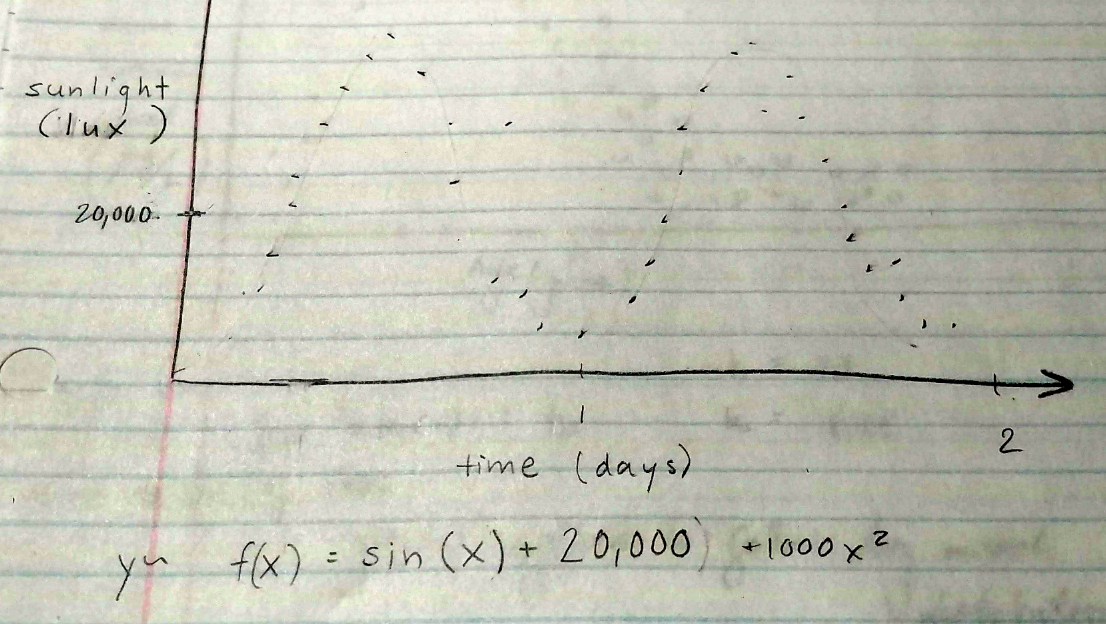 sunlight
(lux)
20,000
1
2
time (days)
y~ f(x) = sin(x) + 20,000) +1000x²